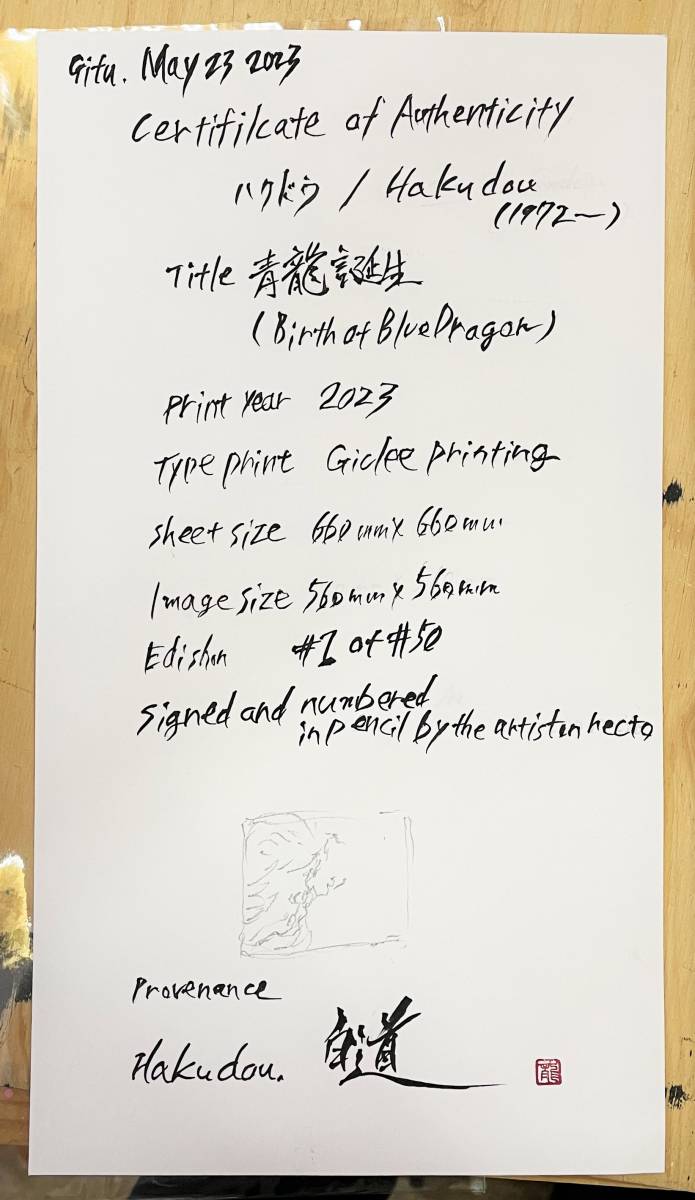 Gifu. May 23 2023
Certifilcate of Authenticity
ハクドウ / Hakudou
(1972〜)
Title 青龍誕生
(Birth of Blue Dragon)
Print Year 2023
Type print Giclee printing
Sheet size 660mm x 660mm
Image size 560mm x 560mm
Edishon #1 of #50
Signed and numbered
in pencil by the artist on recto
Provenance
Hakudou.
龍